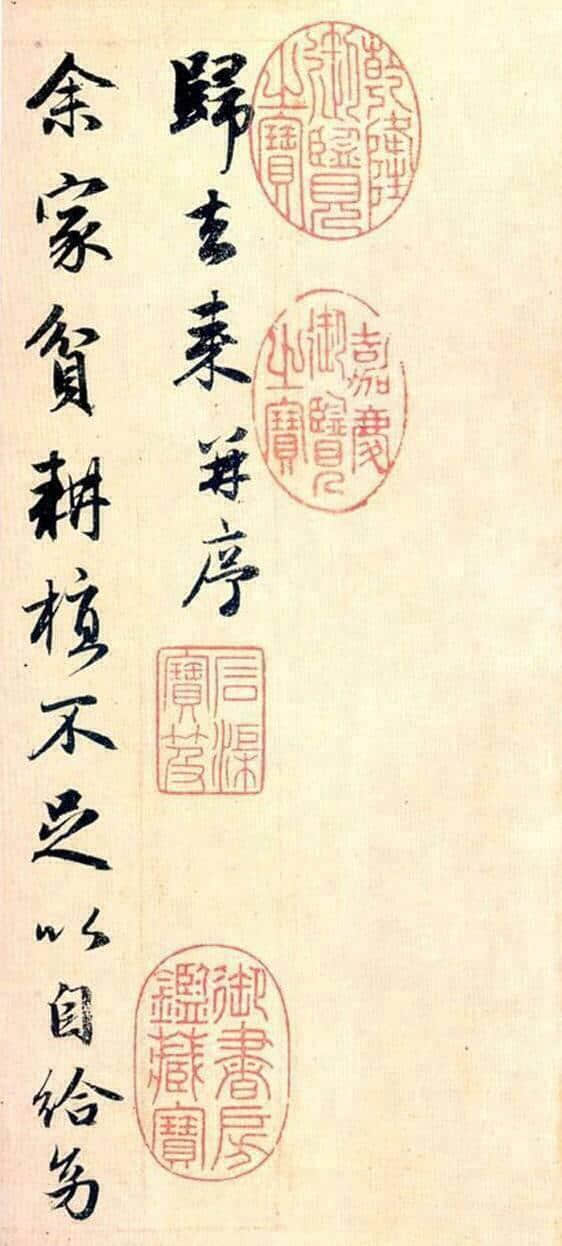 歸去来并序
余家貧耕植不足以自給幼
乾隆御覽之寶
嘉慶御覽之寶
石渠寶笈
御書房鑑藏寶